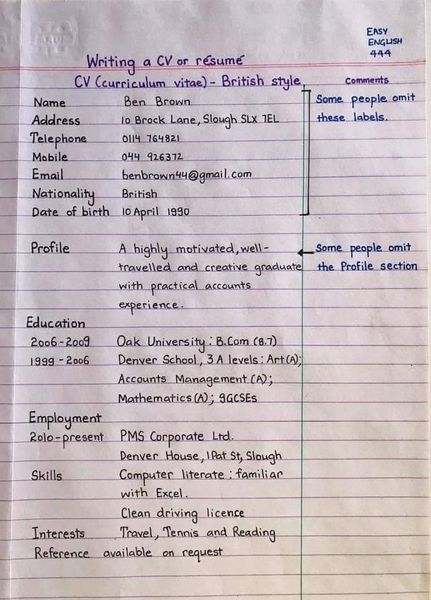 EASY
ENGLISH
444
Writing a CV or résumé
CV (curriculum vitae) - British style
Comments
Name Ben Brown
Some people omit
Address 10 Brock Lane, Slough SLX 7EL
these labels.
Telephone 0114 764821
Mobile 044 926372
Email benbrown44@gmail.com
Nationality British
Date of birth 10 April 1990
Profile A highly motivated, well-
Some people omit
travelled and creative graduate
the Profile section
with practical accounts
experience.
Education
2006-2009 Oak University: B.Com (8.7)
1999-2006 Denver School, 3 A levels: Art(A);
Accounts Management (A);
Mathematics (A); 9GCSEs
Employment
2010-present PMS Corporate Ltd.
Denver House, 1 Pat St, Slough
Skills Computer literate: familiar
with Excel.
Clean driving licence
Interests Travel, Tennis and Reading
Reference available on request